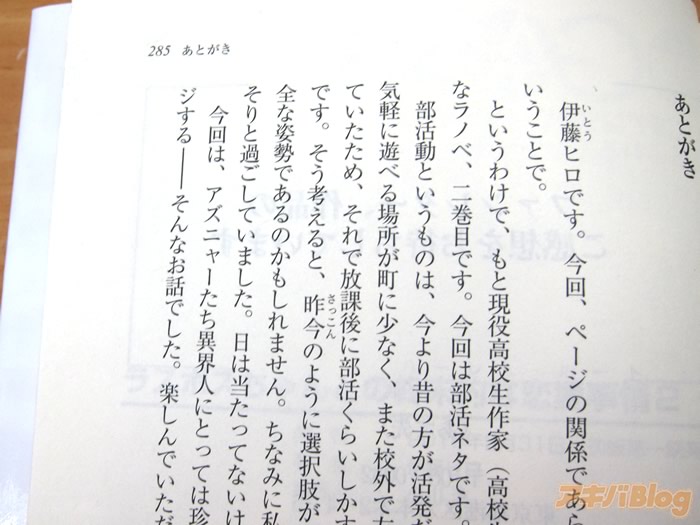 285 あとがき
あとがき
伊藤ヒロです。今回、ページの関係であ
いうことで。
というわけで、もと現役高校生作家（高校
なラノベ、二巻目です。今回は部活ネタです。
部活動というものは、今より昔の方が活発だ
気軽に遊べる場所が町に少なく、また校外で
ていたため、それで放課後に部活くらいしかす
です。そう考えると、昨今のように選択肢が
全な姿勢であるのかもしれません。ちなみに私
そりと過ごしていました。日は当たってないけ
今回は、アズニャーたち異界人にとっては珍
ジする――そんなお話でした。楽しんでいただ
いとう
さっこん
アキバBlog